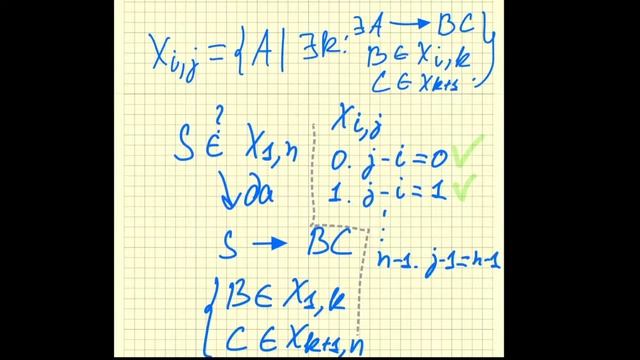 X i,j = { A | ∃k: ∃A → BC
B ∈ X i,k
C ∈ X k+1 . }
S ∈? X 1,n
↓ да
S → BC
{ B ∈ X 1,k
C ∈ X k+1,n
X i,j
0. j-i=0 ✓
1. j-i=1 ✓
⋮
n-1. j-1=n-1